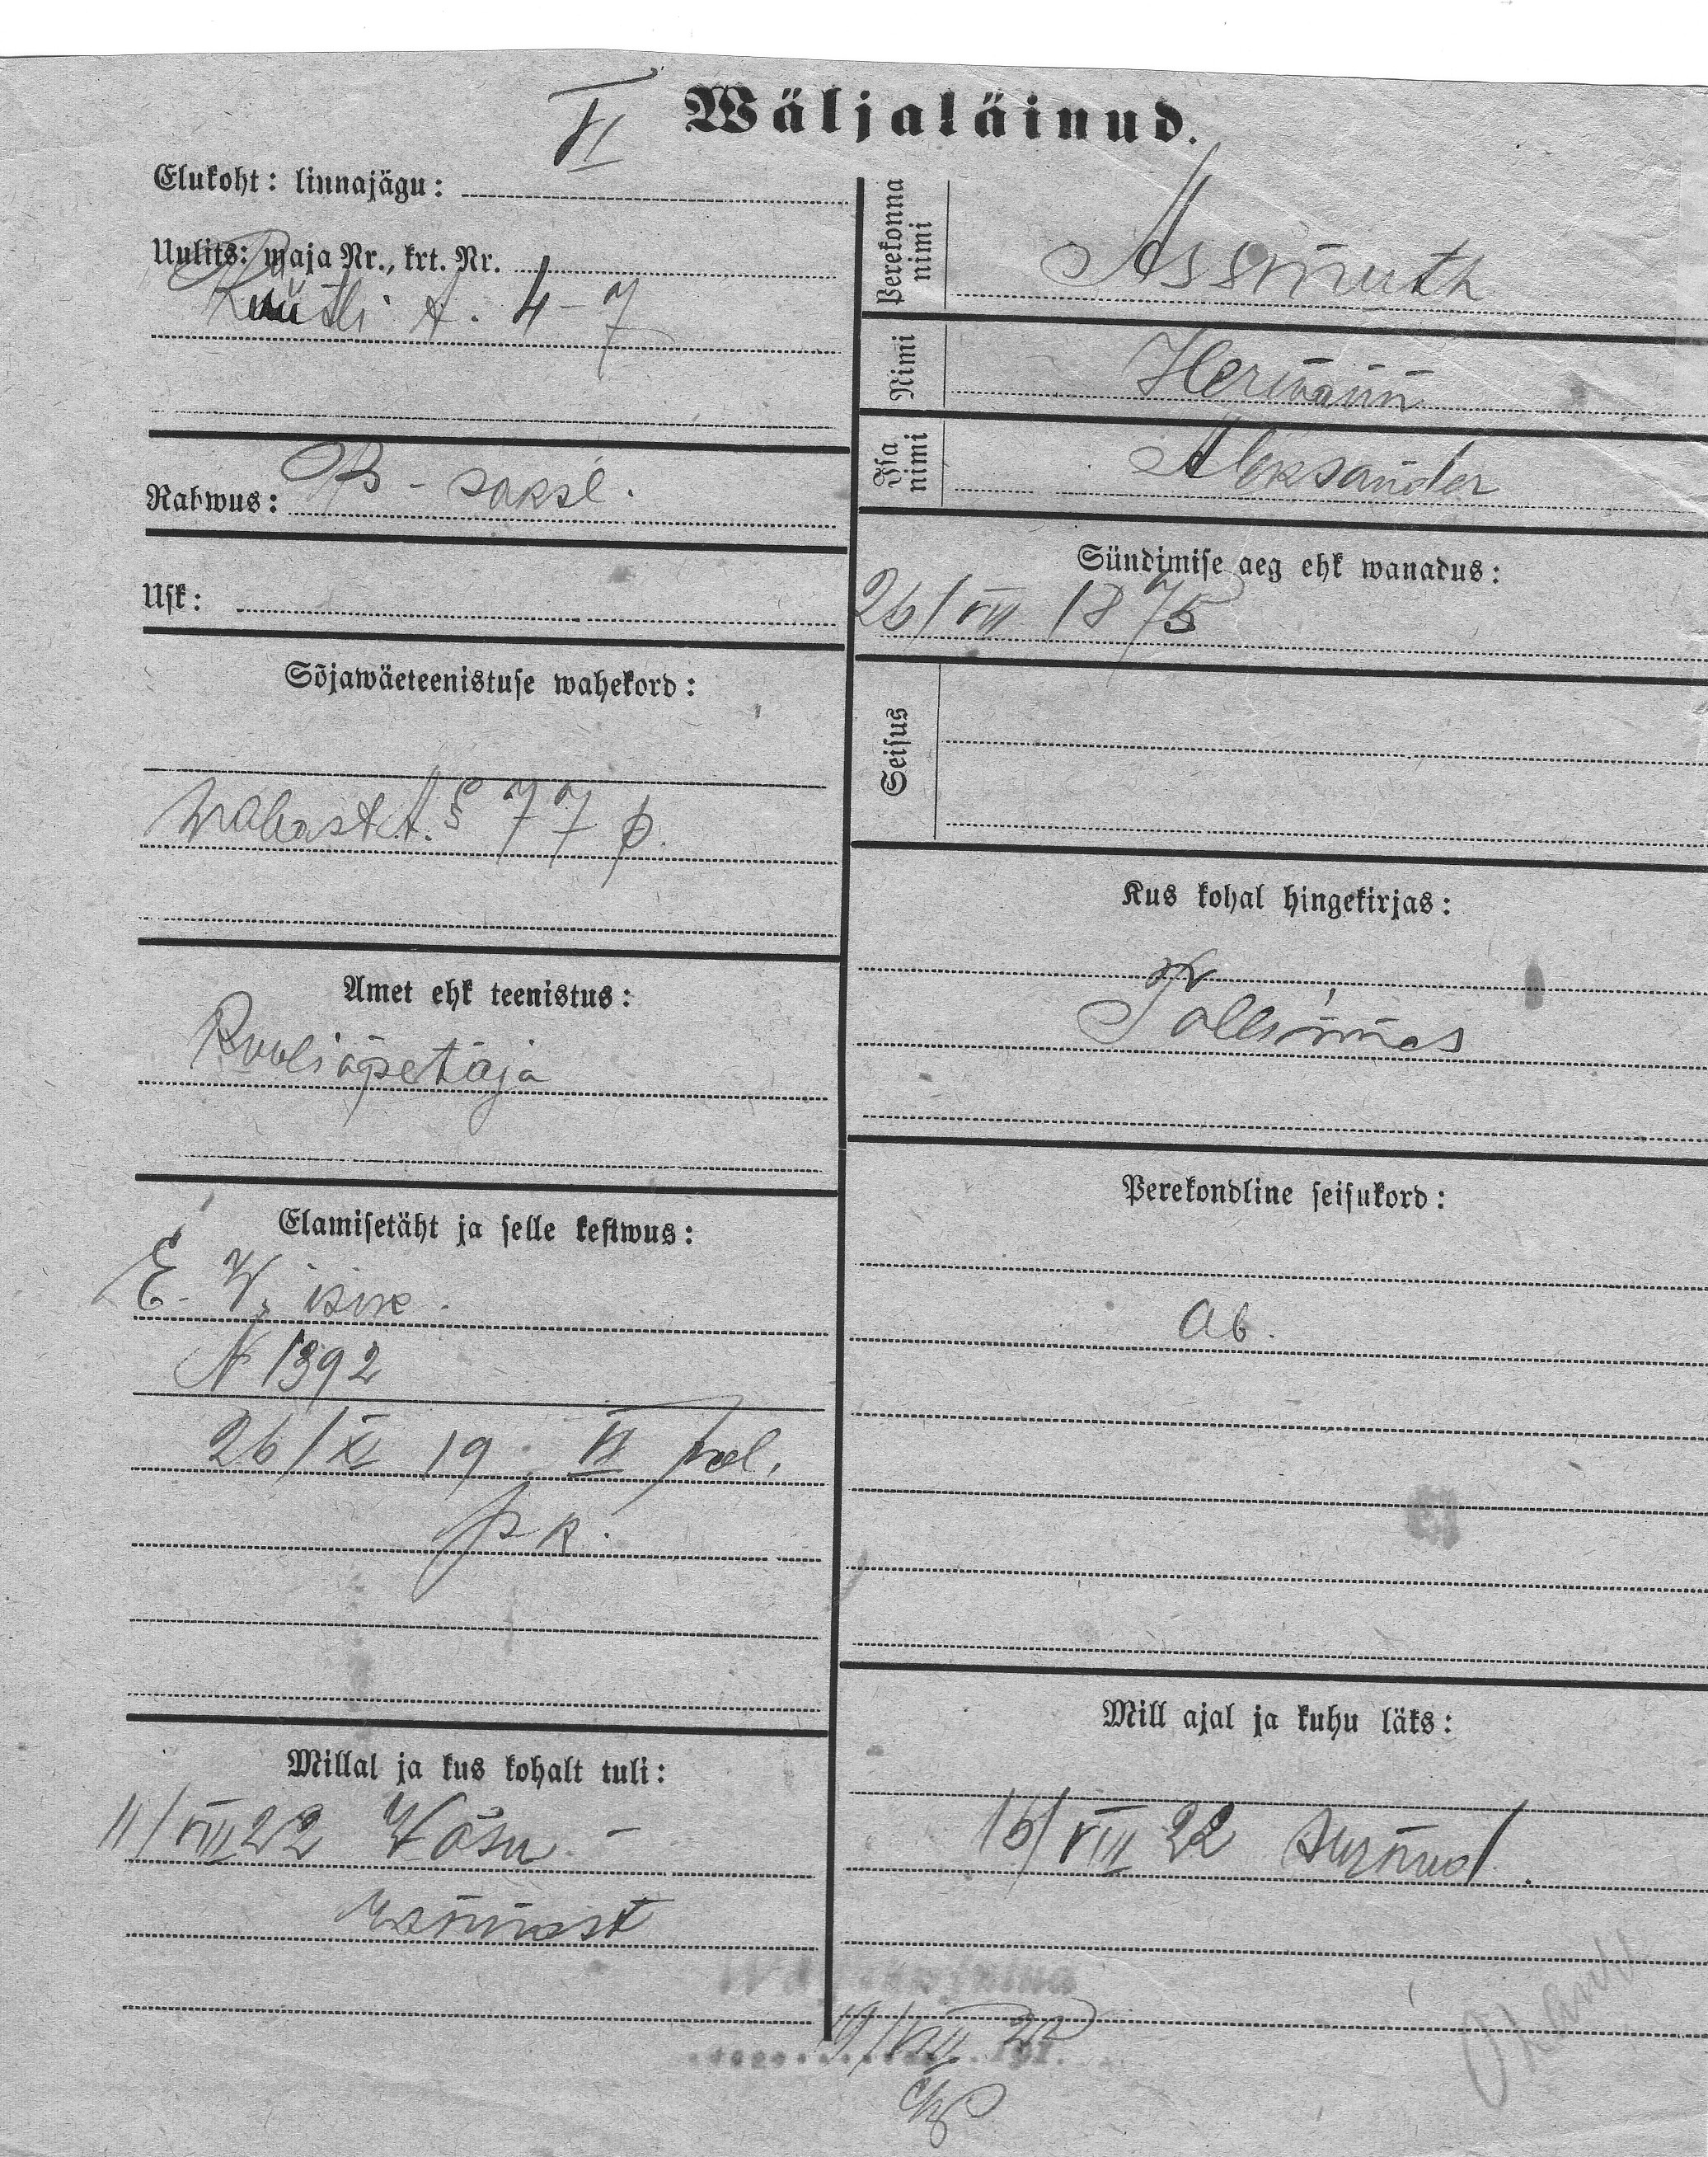 Wäljaläinud.
VI
Elukoht: linnajägu:
Uulits: maja Nr., krt. Nr.
Rüütli t. 4-7
Rahwus: B-saksl.
Usk:
Sõjawäeteenistuse wahekord:
Wabast. t. § 77 p.
Amet ehk teenistus:
Kooliõpetaja
Elamisetäht ja selle kestwus:
E. W. isik.
N 1392
26/XI 19. VI pol.
jsk.
Millal ja kus kohalt tuli:
11/VIII 22 Wõsu-
rannast
Perekonna nimi
Assmuth
Nimi
Hermann
Isa nimi
Aleksander
Sündimise aeg ehk wanadus:
26/VIII 1875
Seisus
Kus kohal hingekirjas:
Tallinnas
Perekondline seisukord:
ab.
Mill ajal ja kuhu läks:
16/VIII 22 surnud.
19/VIII 22
192 .